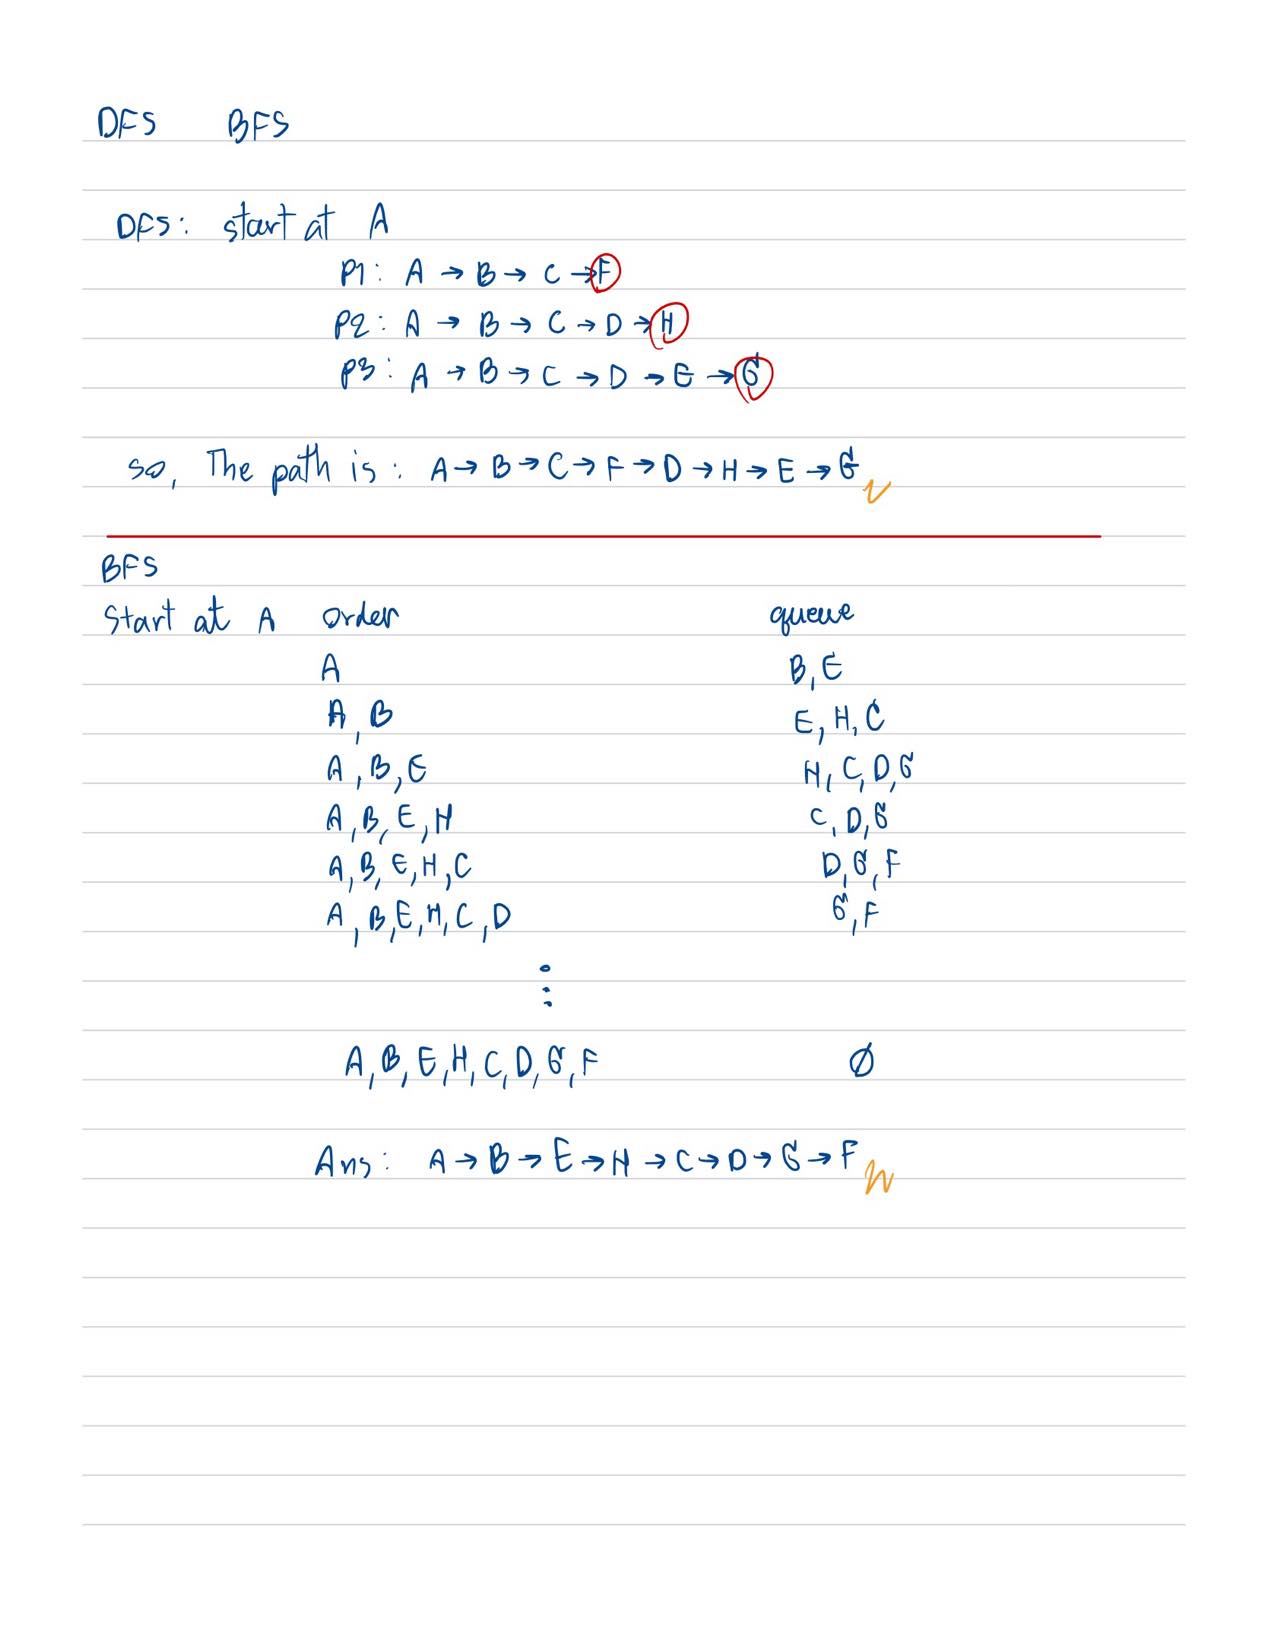 DFS BFS
DFS: start at A
P1: A → B → C → F
P2: A → B → C → D → H
P3: A → B → C → D → E → G
so, The path is: A → B → C → F → D → H → E → G
BFS
Start at A order queue
A B, E
A, B E, H, C
A, B, E H, C, D, G
A, B, E, H C, D, G
A, B, E, H, C D, G, F
A, B, E, H, C, D G, F
⋮
A, B, E, H, C, D, G, F ∅
Ans: A → B → E → H → C → D → G → F